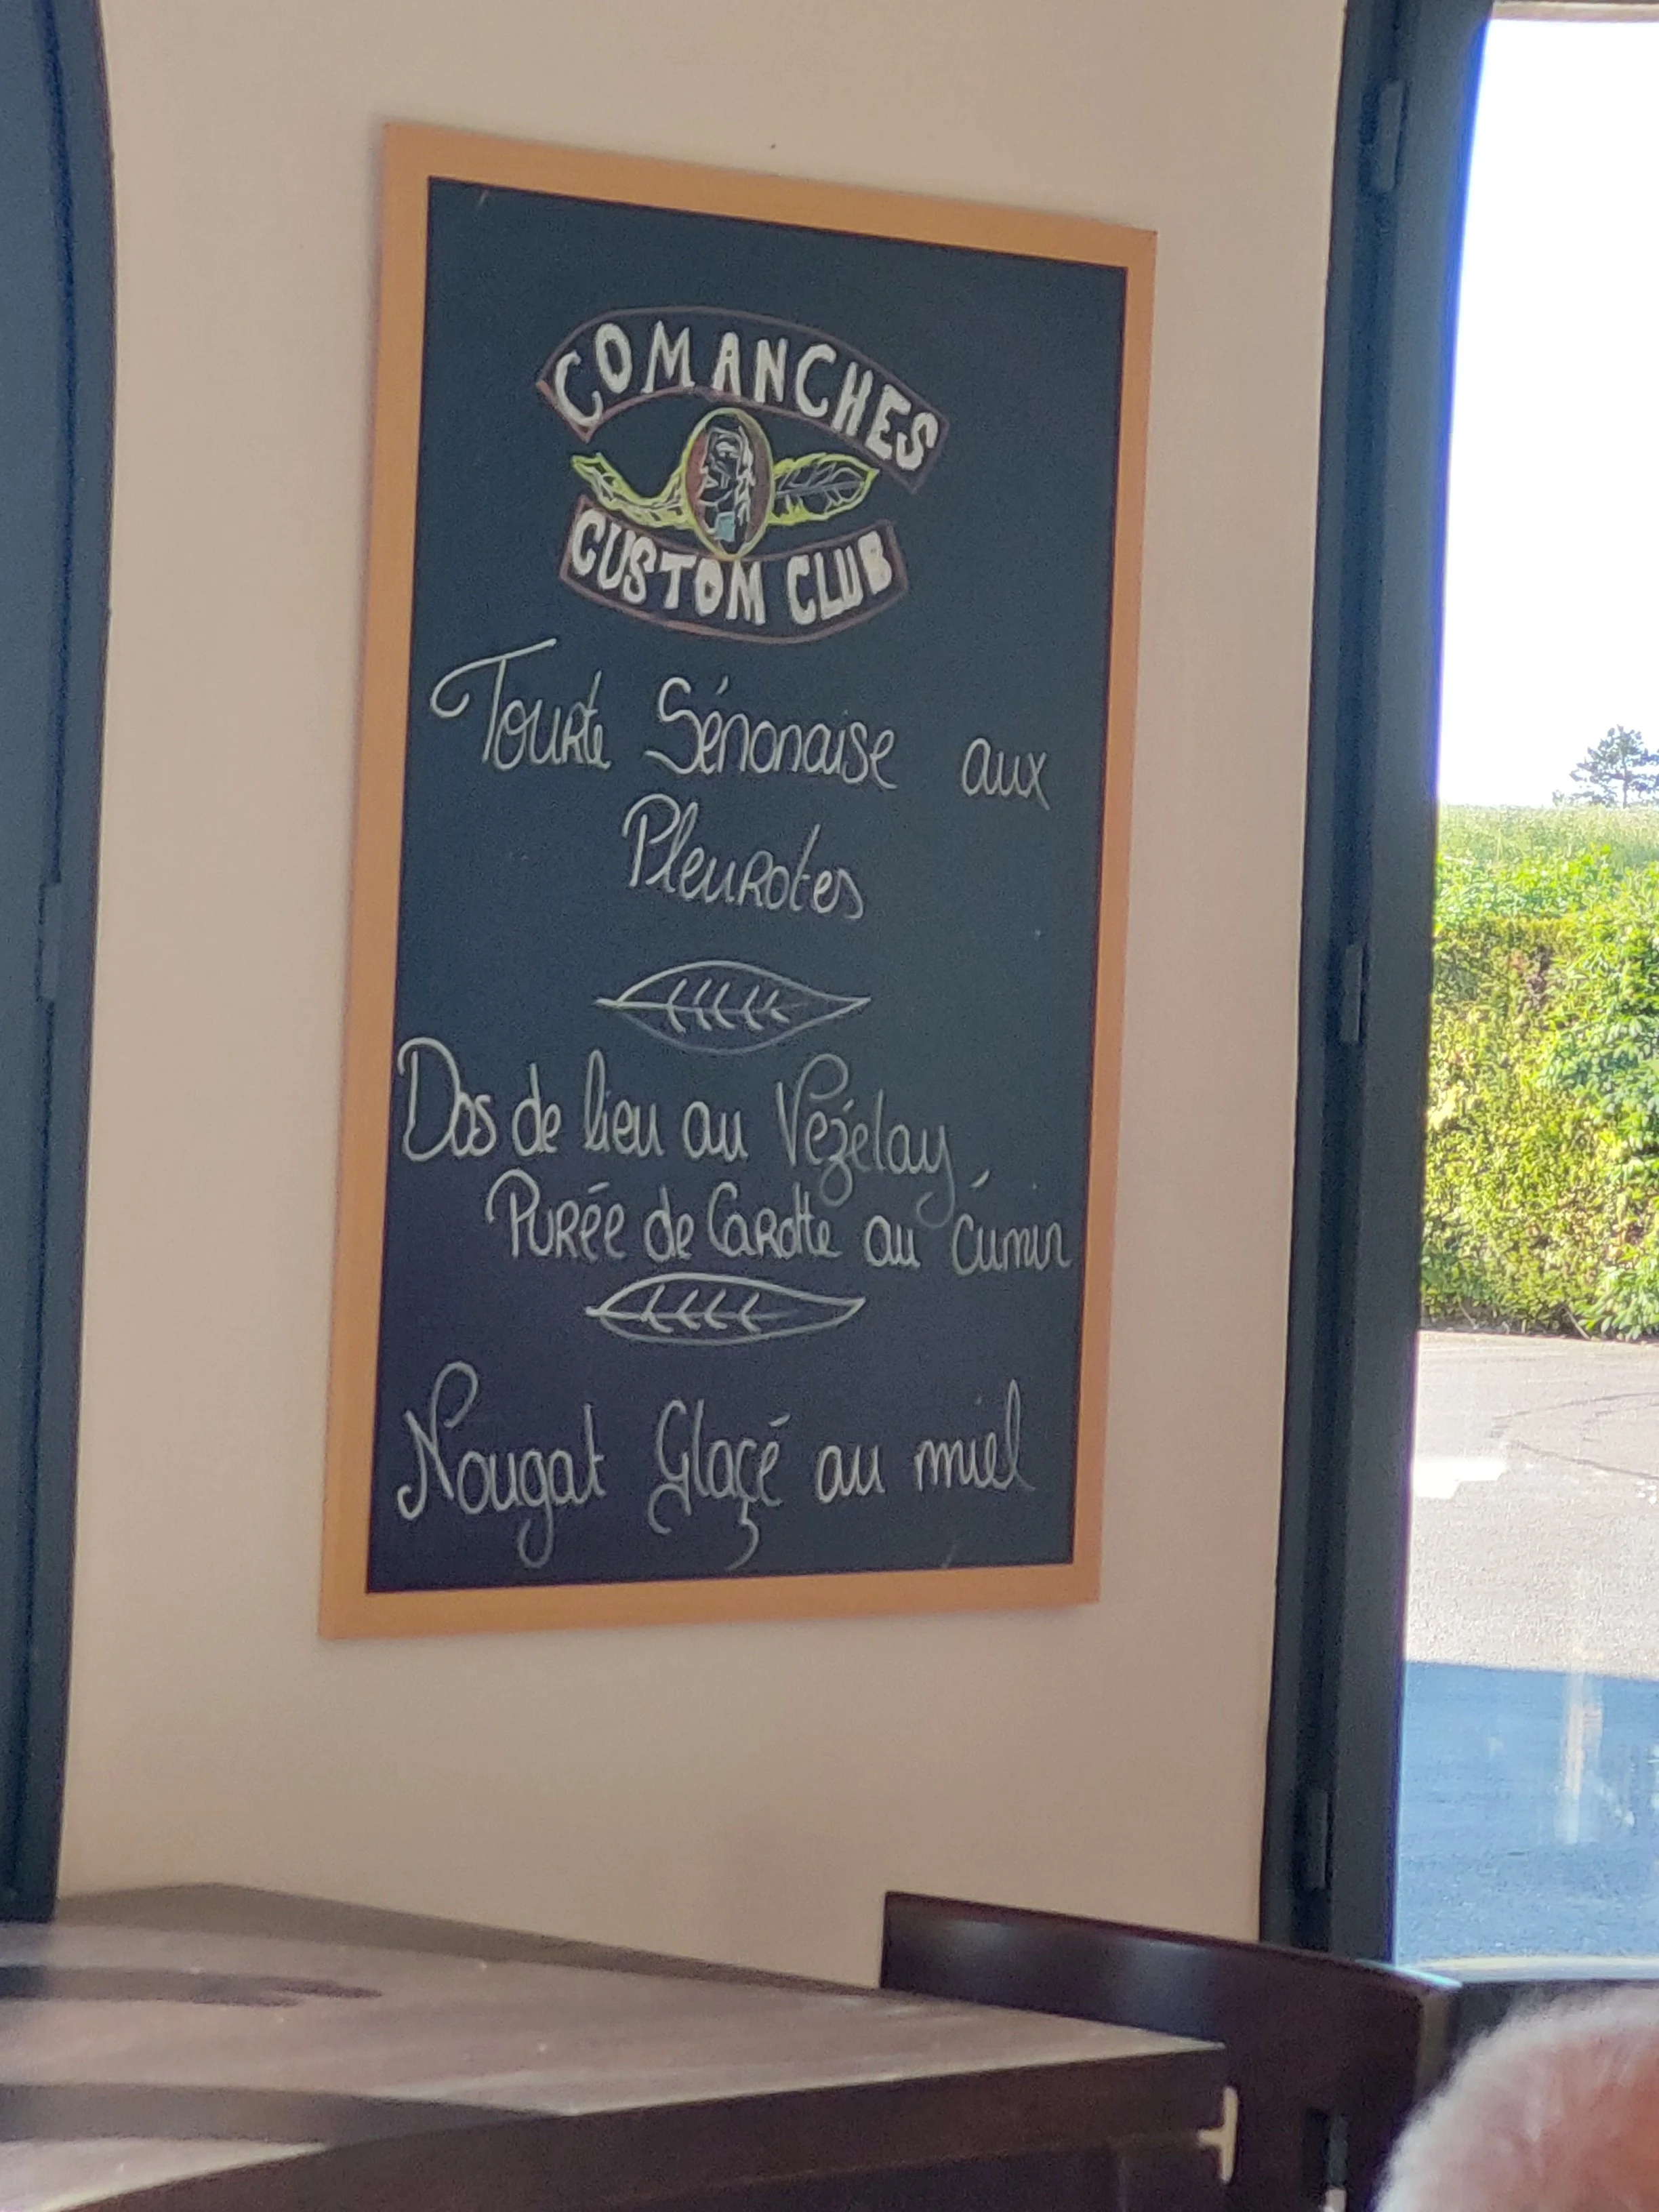 COMANCHES
CUSTOM CLUB
Tourte Sénonaise aux
Pleurotes
Dos de lieu au Vezélay
Purée de Carotte au Cumin
Nougat Glaçé au miel